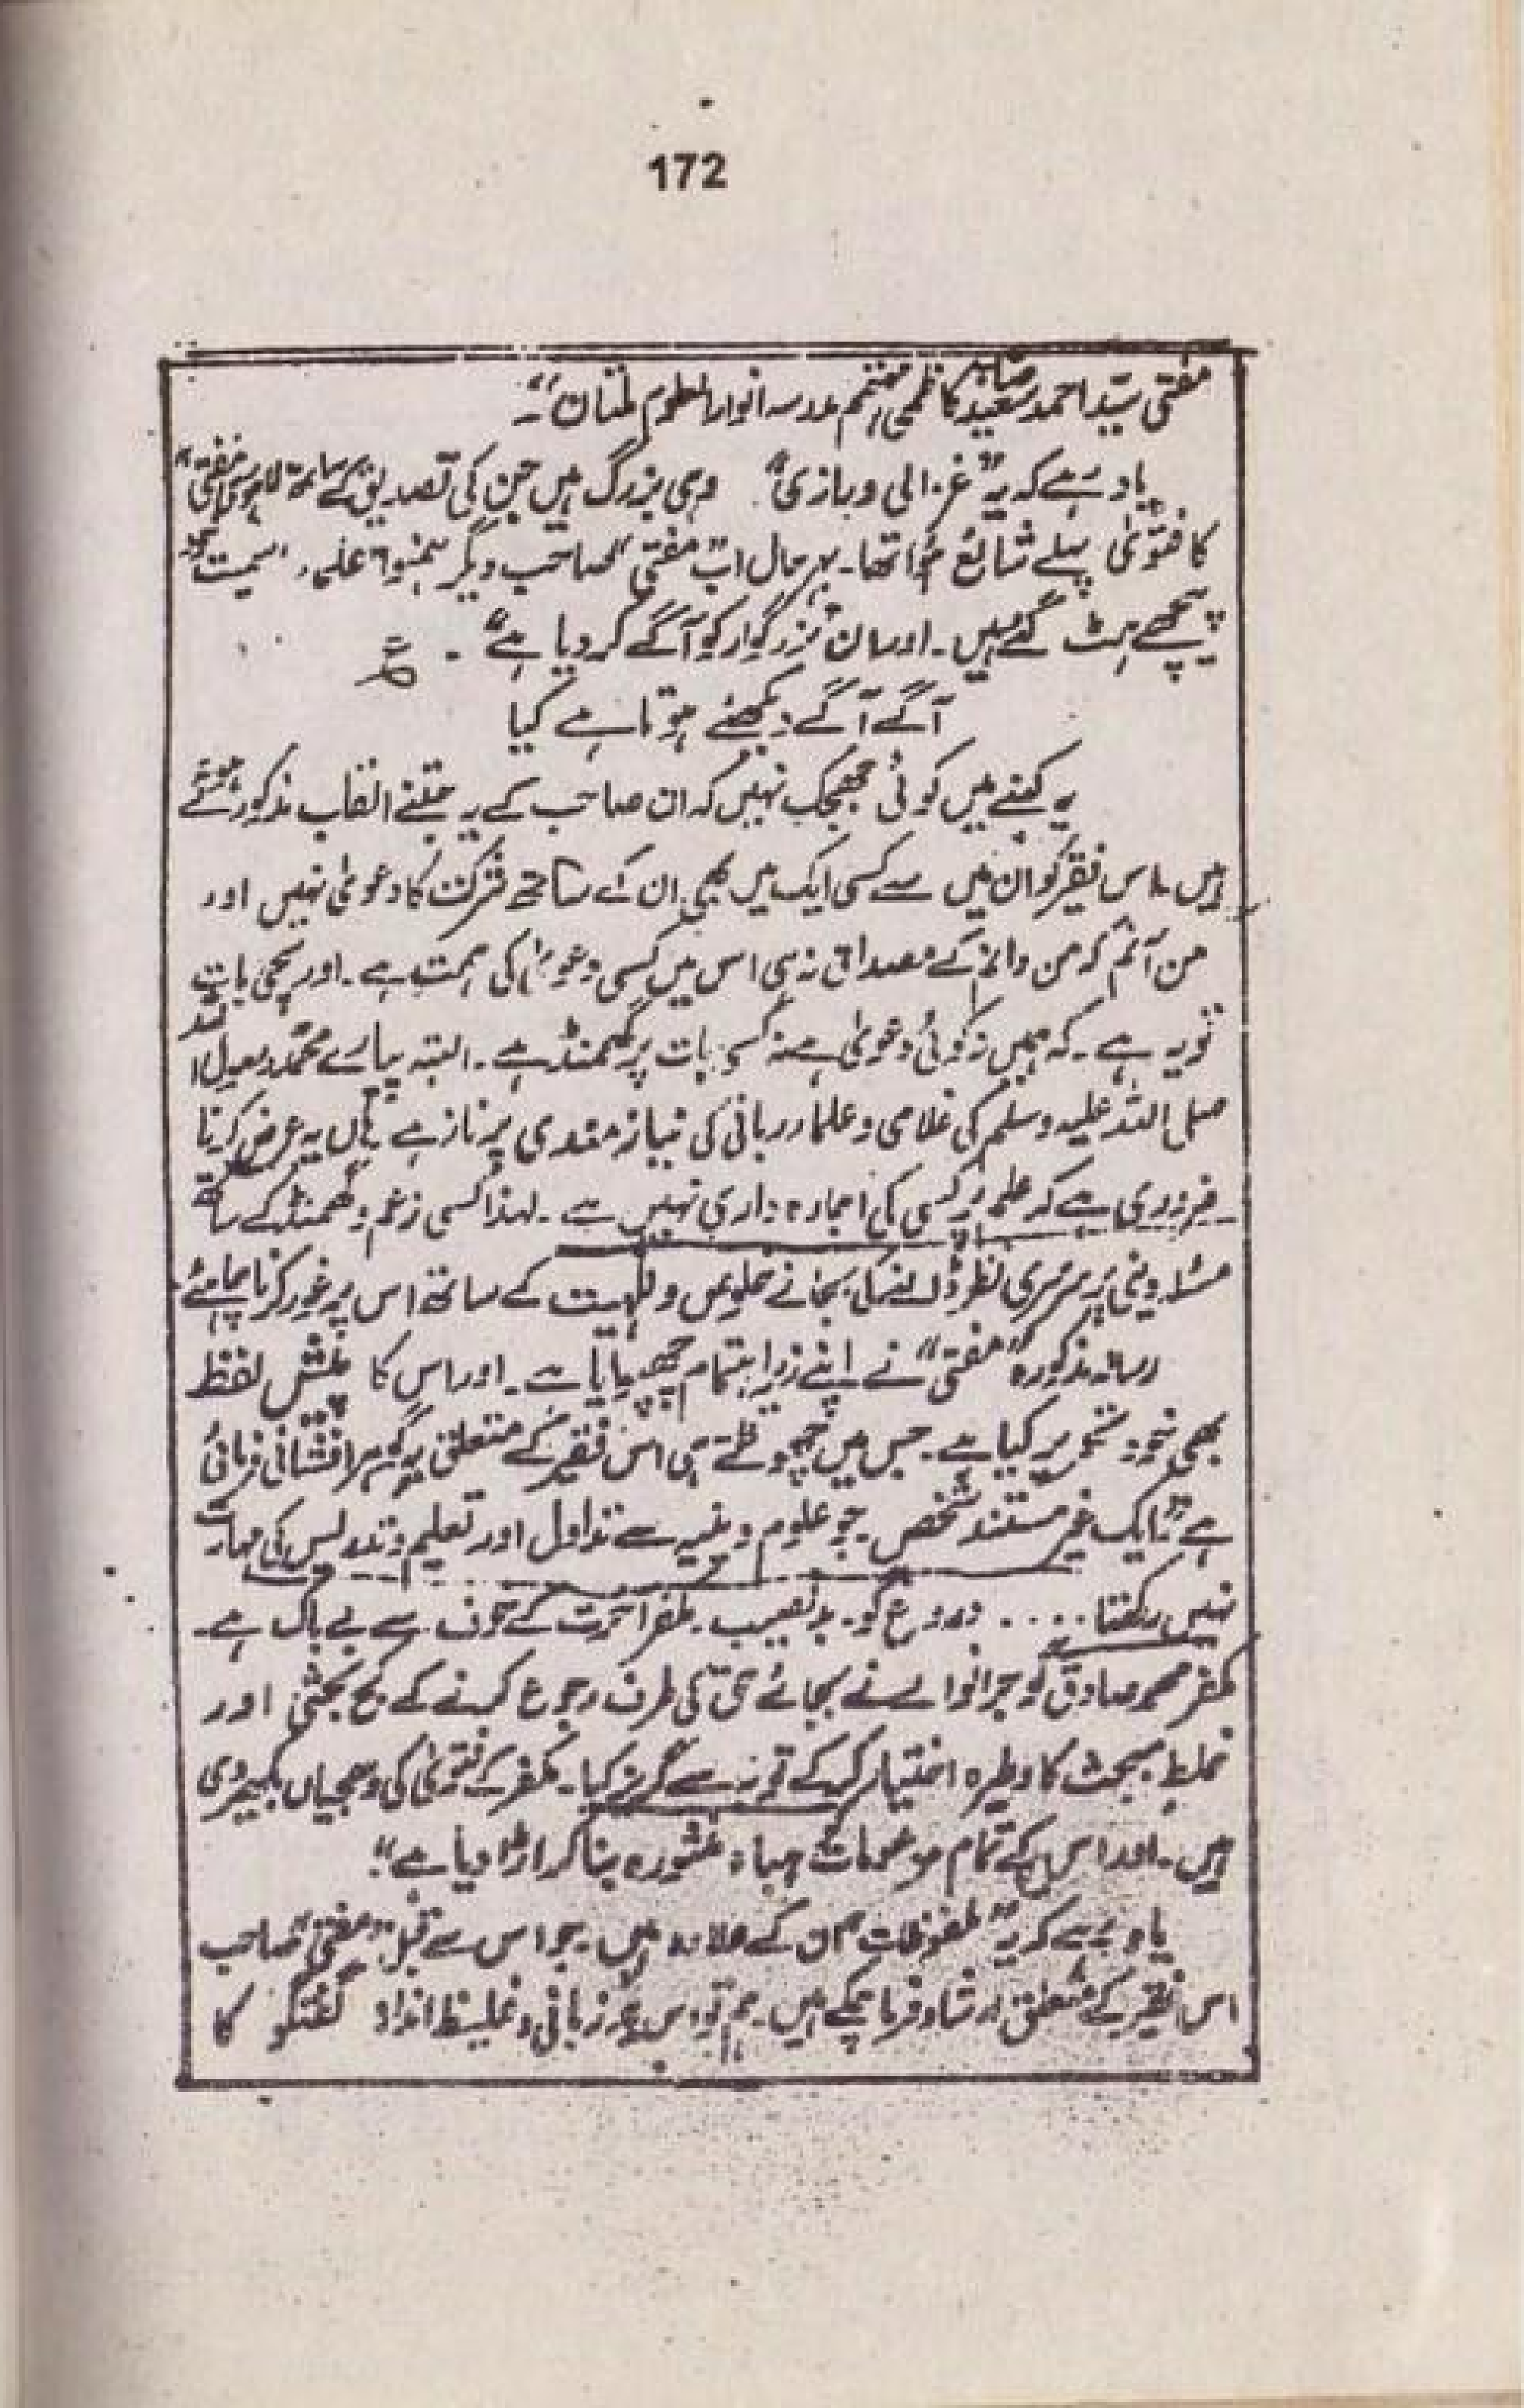 172
مفتی سیّد احمد سعید صاحب کاظمی مہتمم مدرسہ انوار العلوم ملتان"۔
یاد رہے کہ یہ "غزالی و رازی" وہی بزرگ ہیں جن کی تصدیق کے ساتھ لاہوری "مفتی"
کا فتویٰ پہلے شائع ہوا تھا۔ بہر حال اب "مفتی" صاحب دیگر ہمنوا علماء سمیت خود
پیچھے ہٹ گئے ہیں۔ اور ان بزرگوار کو آگے کر دیا ہے۔ ع
آگے آگے دیکھئے ہوتا ہے کیا
یہ کہنے میں کوئی جھجک نہیں کہ ان صاحب کے یہ جتنے القاب مذکور ہوئے
ہیں۔ اس فقیر کو ان میں سے کسی ایک میں بھی ان کے ساتھ شرکت کا دعویٰ نہیں اور
من آنم کہ من دانم کے مصداق نہ ہی اس میں کسی دعویٰ کی ہمت ہے۔ اور سچی بات
تو یہ ہے۔ کہ ہمیں نہ کوئی دعویٰ ہے نہ کسی بات پر گھمنڈ ہے۔ البتہ پیارے محمد رسول اللہ
صلی اللہ علیہ وسلم کی غلامی و علماء ربانی کی نیاز مندی پر ناز ہے ہاں یہ عرض کرنا
ضروری ہے کہ علم پر کسی کی اجارہ داری نہیں ہے۔ لہذا کسی زعم و گھمنڈ کے ساتھ
مسئلہ دینی پر سرسری نظر ڈالنے کی بجائے خلوص و للّٰہیت کے ساتھ اس پر غور کرنا چاہئے۔
رسالہ مذکورہ "مفتی" نے اپنے زیر اہتمام چھپایا ہے۔ اور اس کا پیش لفظ
بھی خود تحریر کیا ہے۔ جس میں چھوٹتے ہی اس فقیر کے متعلق یہ گوہر افشانی فرمائی
ہے "ایک غیر مستند شخص جو علوم دینیہ سے تداول اور تعلیم و تدریس کی مہارت
نہیں رکھتا .... دروغ گو۔ بدنصیب۔ مکفر آخرت کے خوف سے بے باک ہے۔
مکفر محمد صادق گوجرانوالے نے بجائے حق کی طرف رجوع کرنے کے کج بحثی اور
خلط مبحث کا وطیرہ اختیار کر کے توبہ سے گریز کیا۔ مکفر کے فتویٰ کی دھجیاں بکھیر دی
ہیں۔ اور اس کے تمام مزعومات ہباءً منثورہ بنا کر اڑا دیا ہے"۔
یاد رہے کہ یہ "ملفوظات" ان کے علاوہ ہیں۔ جو اس سے قبل "مفتی" صاحب
اس فقیر کے متعلق ارشاد فرما چکے ہیں۔ ہم تو اس بدزبانی و غلیظ انداز گفتگو کا